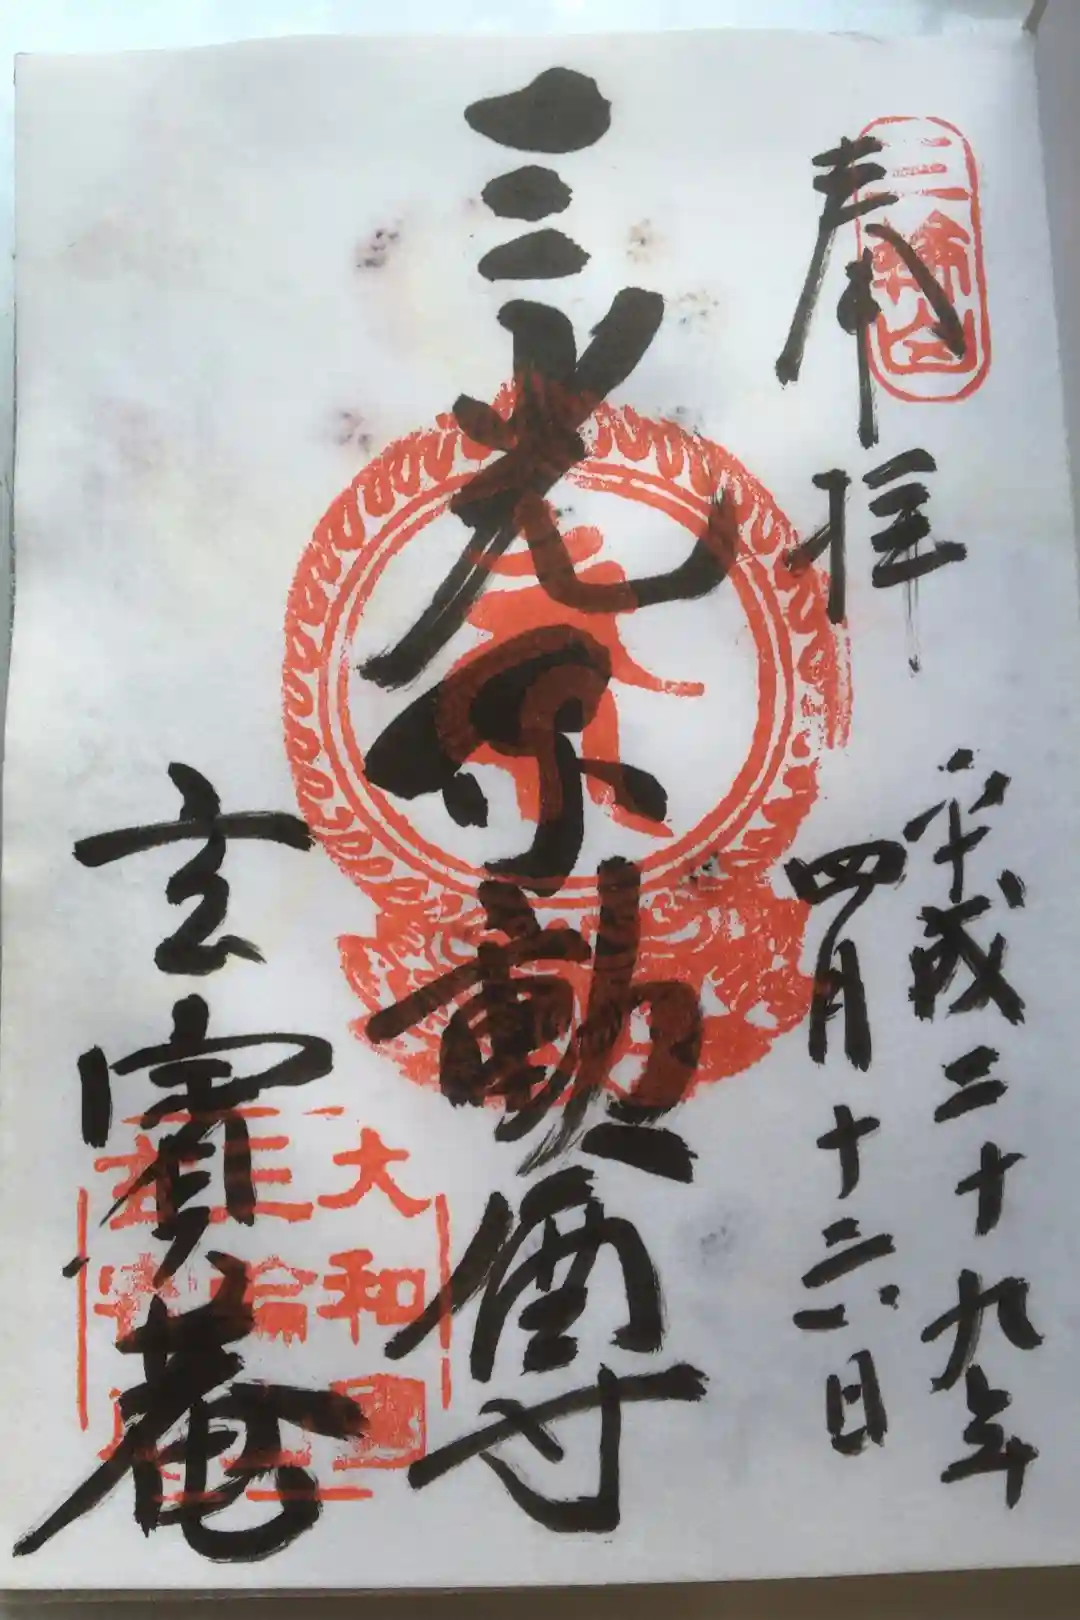 奉拝
三輪山
平成二十九年
四月十三日
三光不動尊
玄賓庵
大和国
三輪山
玄賓庵